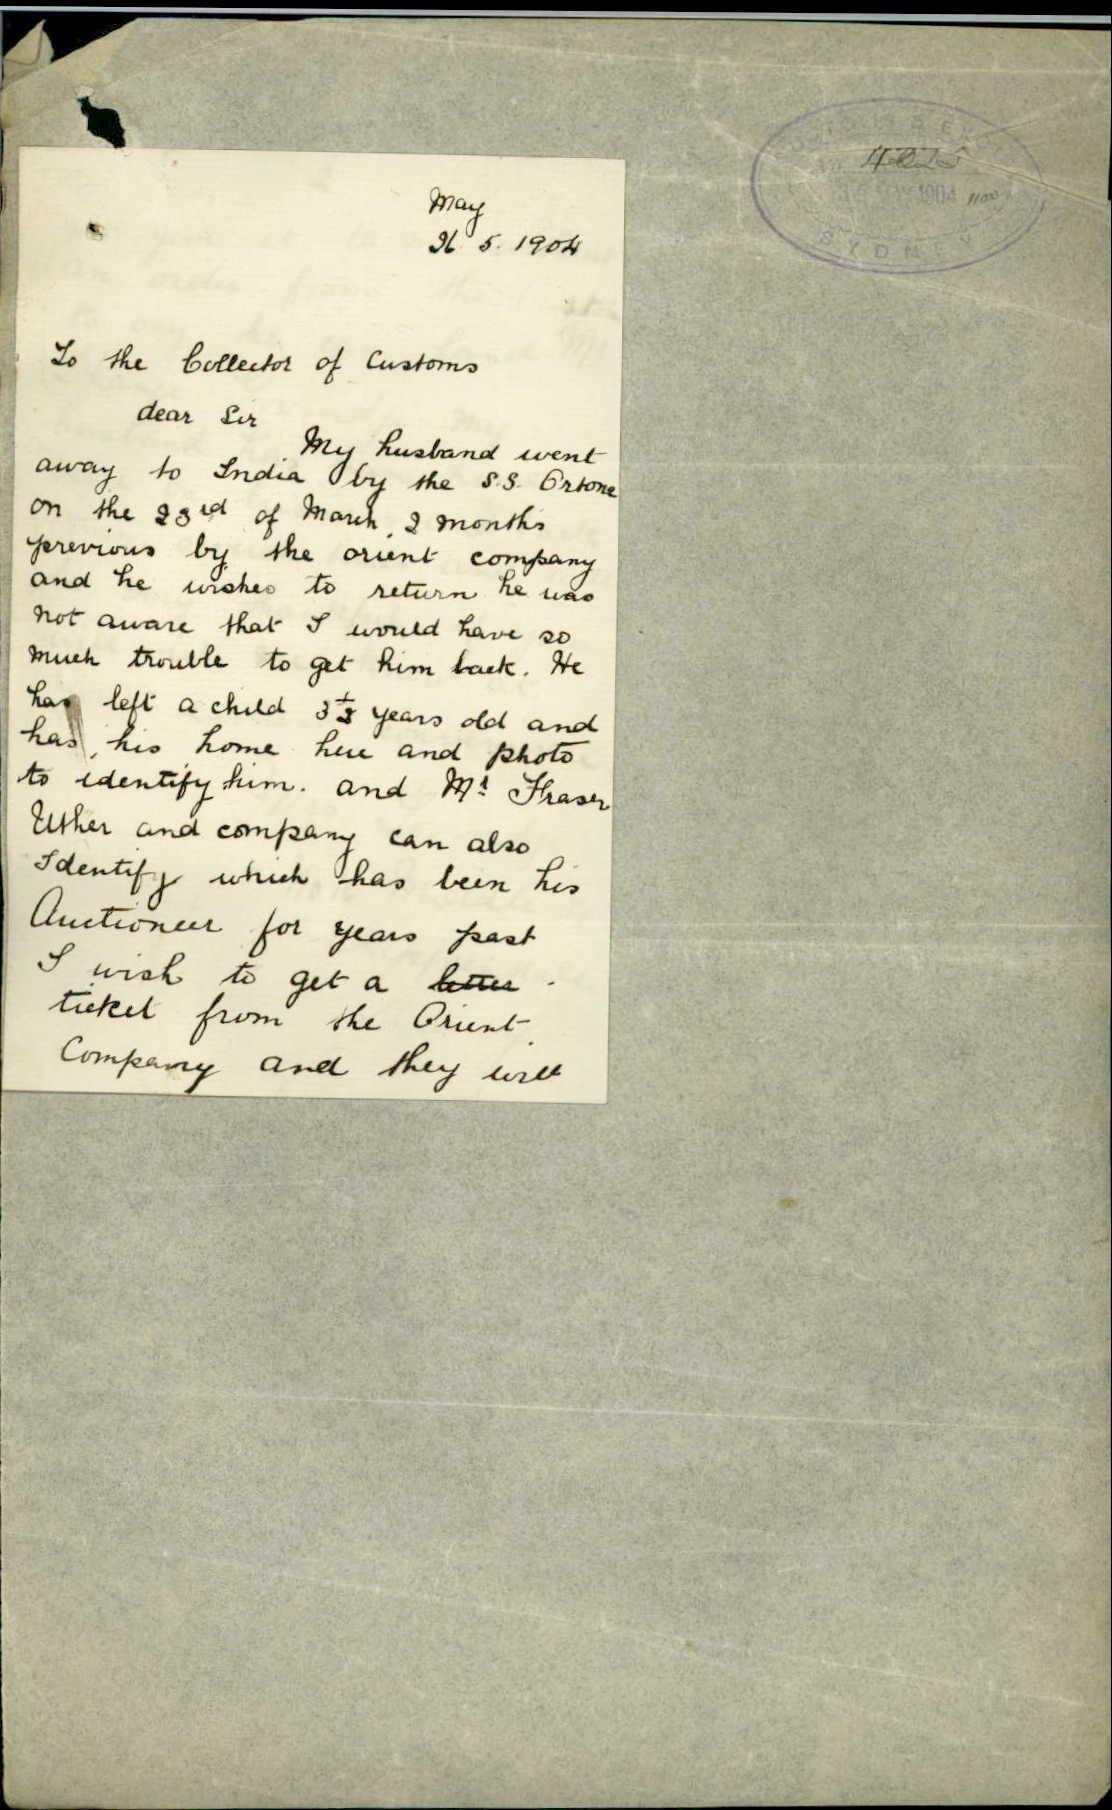 May
26 5. 1904
To the Collector of Customs
dear Sir
My husband went
away to India by the S.S. Ortone
on the 23rd of March 2 months
previous by the orient company
and he wishes to return he was
not aware that I would have so
much trouble to get him back. He
has left a child 3½ years old and
has his home here and photo
to identify him. and Mr Fraser
Uther and company can also
Identify which has been his
Auctioneer for years past
I wish to get a letter
ticket from the Orient
Company and they will
1904
SYDNEY